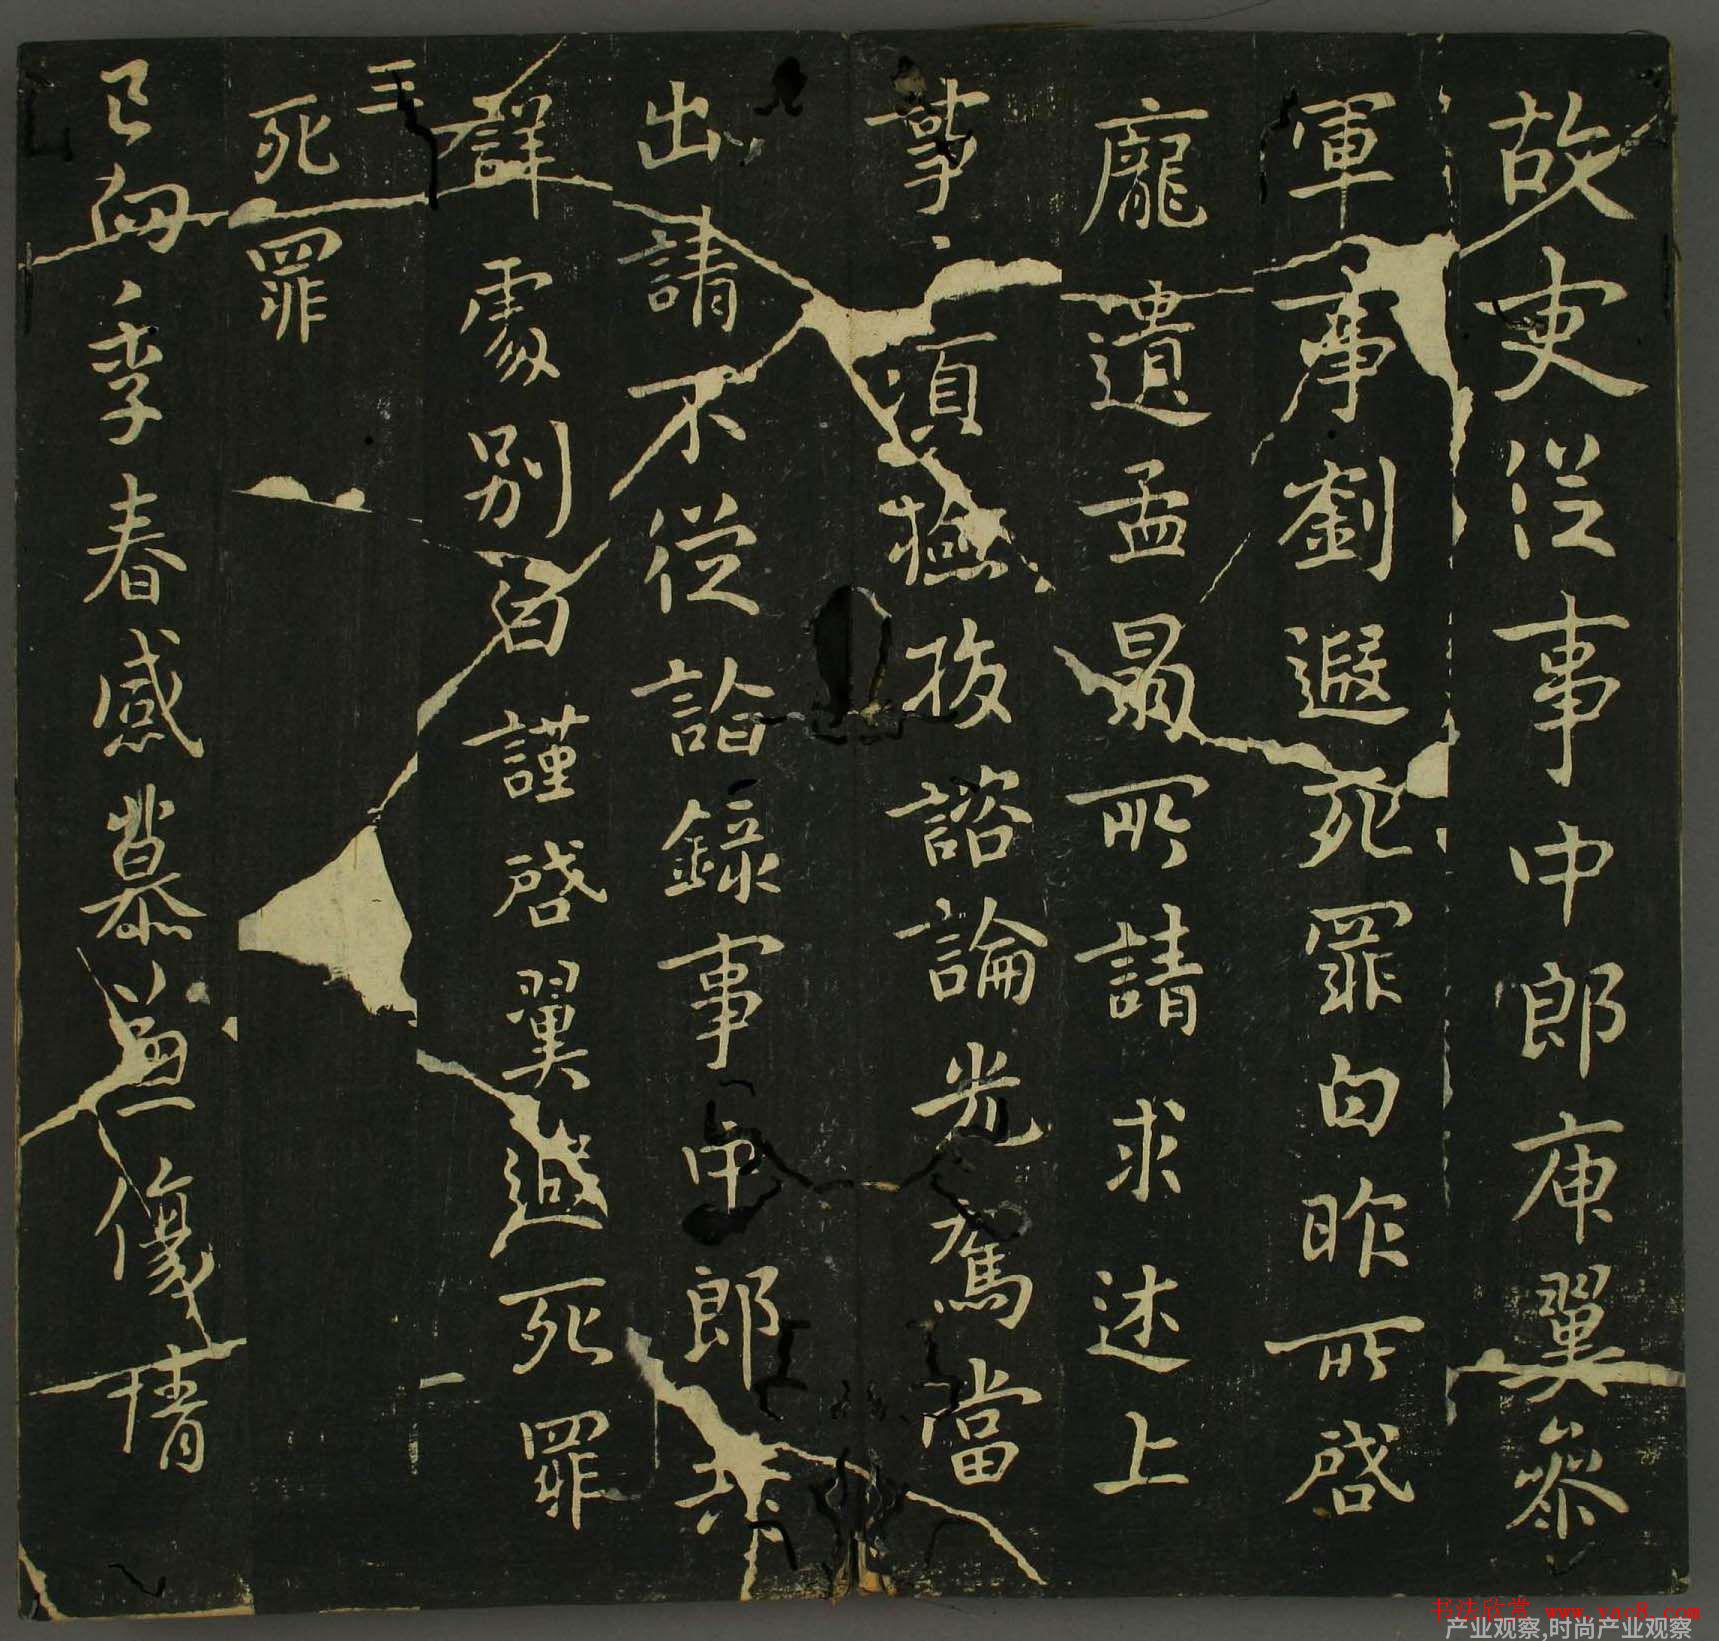 故吏從事中郎庾翼參
軍事劉遐死罪白昨所啓
龐遺孟晷所請求述上
事須檢校諮論光駕當
出請不從詣錄事中郎共
詳處別白謹啓翼遐死罪
三
死罪
已向季春感慕兼傷情
书法欣赏 www.yac8.com
产业观察,时尚产业观察